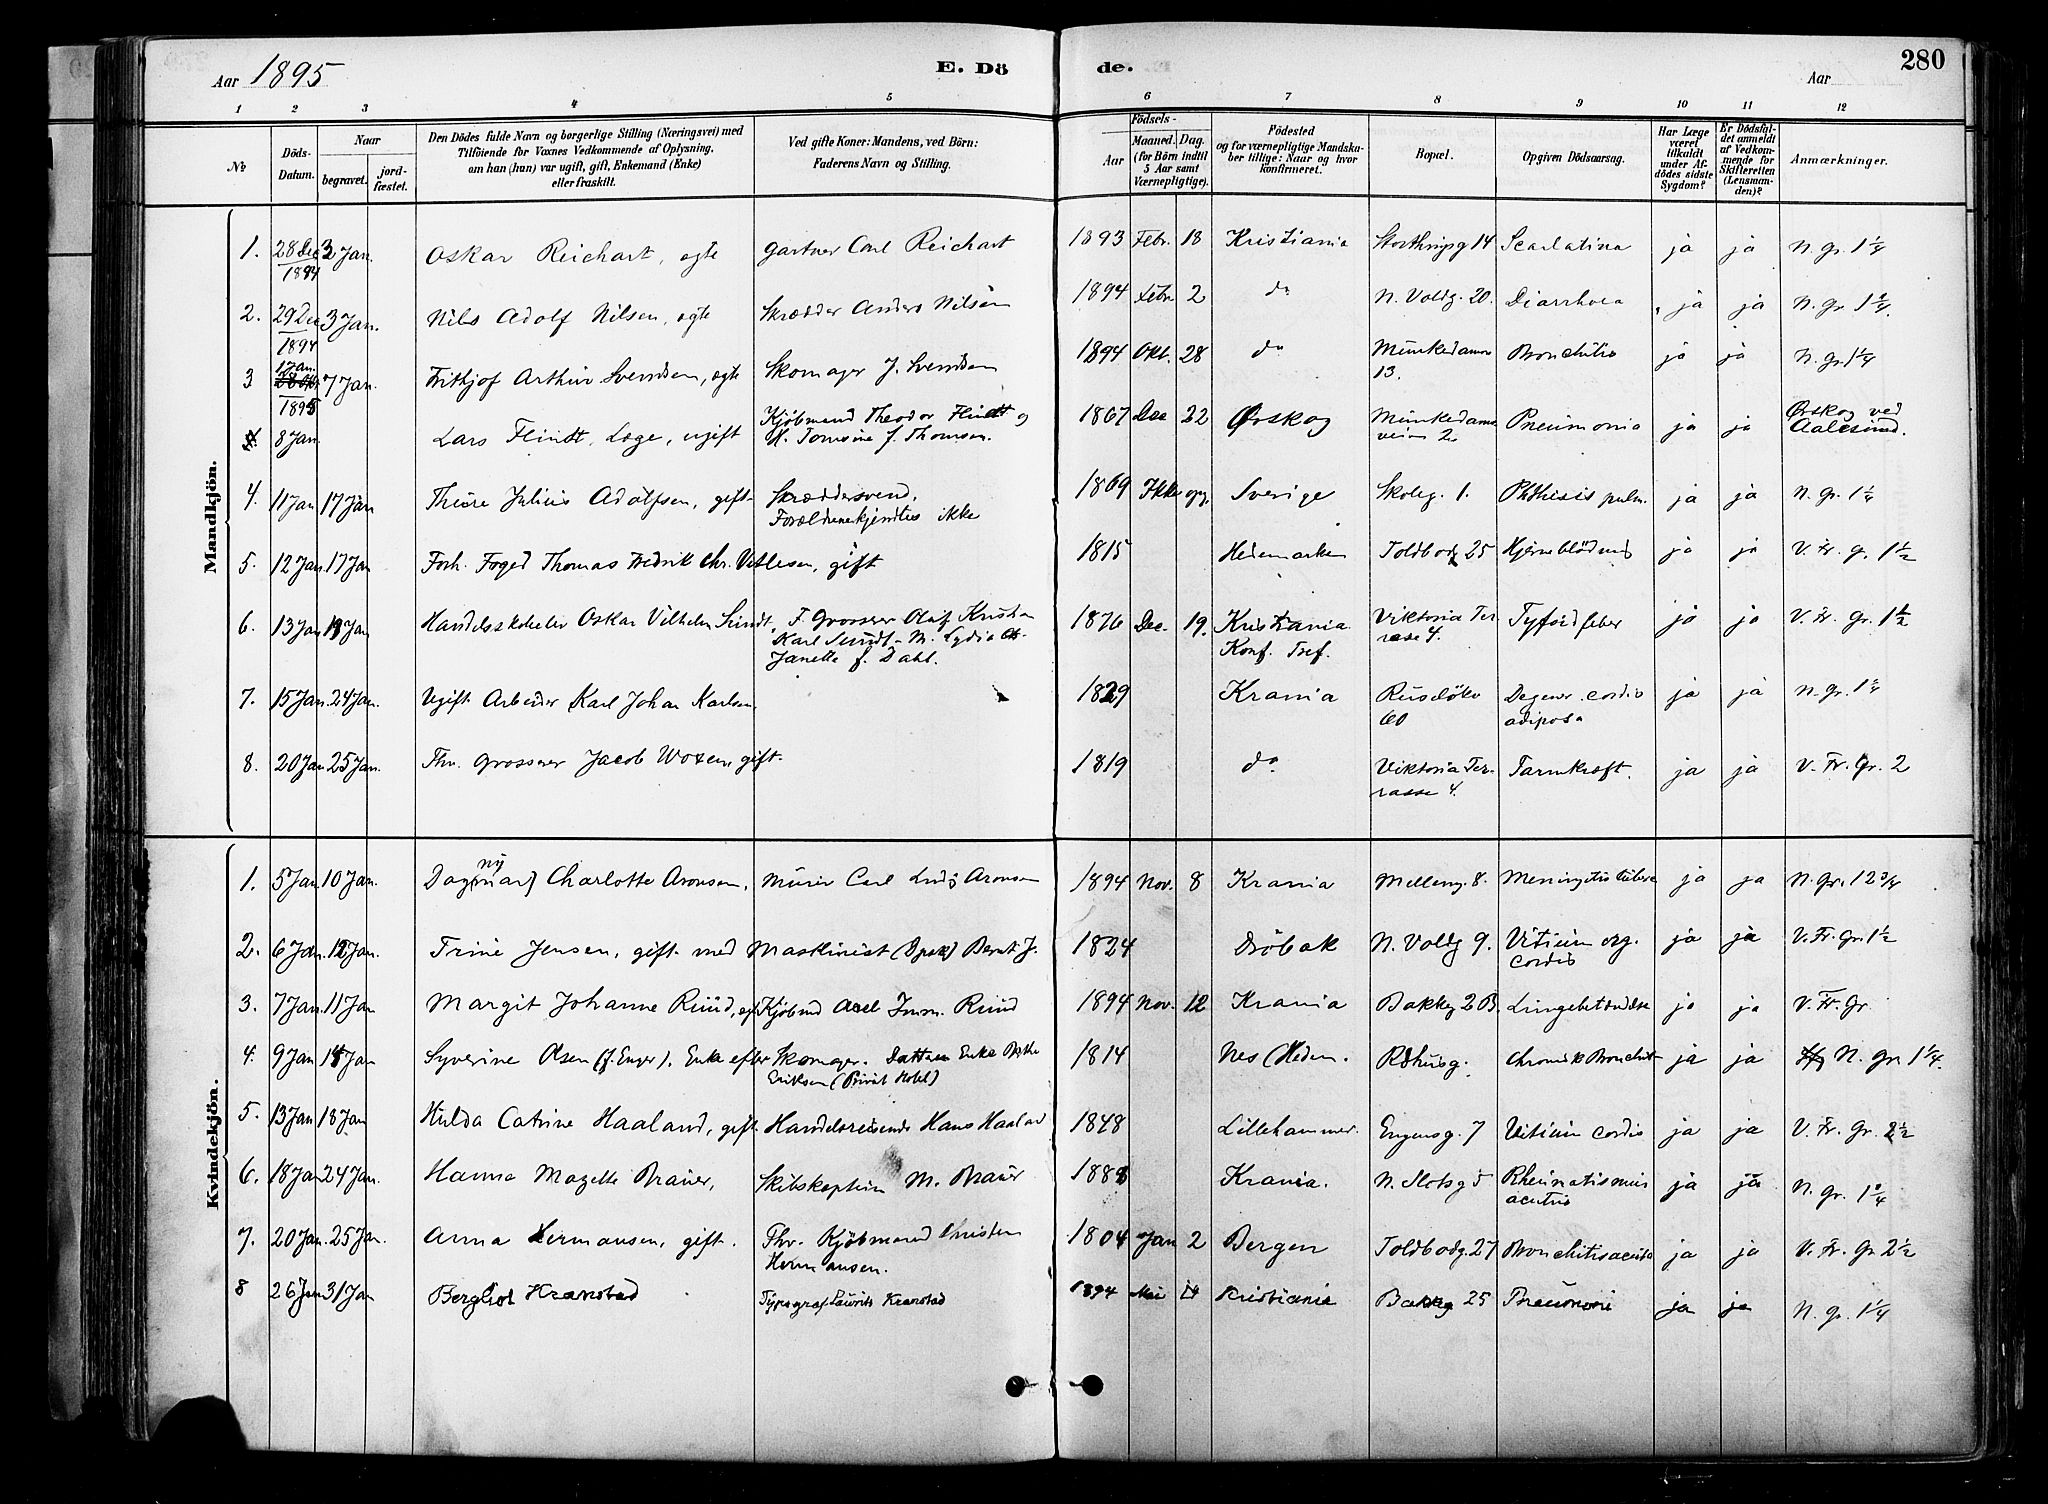 280
Aar 1895 E. Dö de. Aar
1 2 3 4 5 6 7 8 9 10 11 12
№
Döds-Datum.
Naar
begravet.
jord-fæstet.
Den Dödes fulde Navn og borgerlige Stilling (Næringsvei) med
Tilföiende for Voxnes Vedkommende af Oplysning,
om han (hun) var ugift, gift, Enkemand (Enke)
eller fraskilt.
Ved gifte Koner: Mandens, ved Börn:
Faderens Navn og Stilling.
Födsels-
Aar
Maaned. Dag.
(for Börn indtil
5 Aar samt
Værnepligtige).
Födested
og for værnepligtige Mandska-
ber tillige: Naar og hvor
konfirmeret.
Bopæl.
Opgiven Dödsaarsag.
Har Læge
været
tilkaldt
under Af-
dödes sidste
Sygdom?
Er Dödsfal-
det anmeldt
af Vedkom-
mende for
Skifteretten
(Lensman-
den)?
Anmærkninger.
Mandkjön.
1. 28 Dec 1894 3 Jan. Oskar Reichart, ægte gartner Carl Reichart 1893 Febr. 18 Kristiania Storthingsg 14 Scarlatina ja ja N. gr. 1 1/4
2. 29 Dec 1894 3 Jan. Nils Adolf Nilsen, ægte Skrædder Anders Nilsen 1894 Febr 2 do N. Voldg. 20. Diarrhoea ja ja N. gr. 1 1/4
3 1 Jan. 1895 7 Jan. Frithjof Arthur Svendsen, ægte Skomager J. Svendsen 1894 Okt. 28 do Munkedamsv 13. Bronchitis ja ja N. gr. 1 1/4
8 Jan. Lars Flindt, Læge, ugift Kjöbmand Theodor Flindt og
M. Tomine f. Thomsen. 1867 Dec 22 Ørskog Munkedams
veien 2. Pneumonia ja ja Ørskog ved
Aalesund.
4. 11 Jan 17 Jan Thure Julius Adolfsen, gift Skræddersvend.
Forældrene kjendtes ikke 1869 Ikke opg. Sverige Skoleg. 1. Phthisis pulm. ja ja N. gr. 1 1/4
5. 12 Jan. 17 Jan Forh. Foged Thomas Fredrik Chr. Vetlesen, gift 1815 Hedemarken Toldbodg 25 Hjerneblödning ja ja V. Fr. g. 1 1/2
6. 13 Jan 18 Jan Handelsskoleelev Oskar Vilhelm Sundt, F. Grosserer Oluf Kristian
Karl Sundt - M. Lydia
Janette f. Dahl. 1876 Dec. 19. Kristiania
Konf. Tref. Viktoria Ter
rasse 4. Tyfoidfeber ja ja V. Fr. Gr. 1 1/2
7. 15 Jan. 24 Jan. Ugift Arbeider Karl Johan Karlsen. 1829 Krania Ruselökv
60 Degener. cordis
adiposa ja ja N. gr. 1 1/4
8. 20 Jan 25 Jan. Fhv. grosserer Jacob Woxen, gift. 1819 do Viktoria Ter-
rasse 4. Tarmkræft. ja ja V. Fr. Gr. 2
Kvindekjön.
1. 5 Jan. 10 Jan. Dagny Charlotte Aronsen, Murer Carl Ludv Aronsen 1894 Nov. 8 Krania Melleng. 8. Meningitis tuberc ja ja N. Gr. 12 3/4
2. 6 Jan. 12 Jan. Trine Jensen, gift med Maskinist Bernt J. 1824 Dröbak N. Voldg 9. Vitium org.
cordis ja ja V. Fr. Gr. 1 1/2
3. 7 Jan. 11 Jan Margit Johanne Ruud, ægte Kjöbmd Axel Imm. Ruud 1894 Nov. 12 Krania Bakkeg 2B. Lungebetændelse ja ja V. Fr. Gr.
4. 9 Jan 15 Jan Syverine Olsen (f. Enger). Enke efter Skomager. Datteren Enke Berthe
Eriksen (Privat Hotel) 1814 Nes (Hedem. Rdhusg. Chronisk Bronchit ja ja N. gr. 1 1/4.
5. 13 Jan 18 Jan Hilda Catrine Haaland, gift Handelsreisende Hans Haaland 1848 Lillehammer. Engensg. 7 Vitium cordis ja ja V. Fr. Gr. 2 1/2
6. 18 Jan 24 Jan. Hanna Brauer, Skibskaptein M. Brauer 1888 Krania. N. Slotsg 5 Rheumatismus
acutus ja ja N. gr. 1 1/4
7. 20 Jan. 25 Jan. Anna Hermansen, gift. Fhv. Kjöbmand Christen
Hermansen. 1804 Jan 2 Bergen Toldbodg. 27 Bronchitis acuta ja ja V. Fr. Gr 2 1/2
8 26 Jan 31 Jan Bergliot Kranstad Typograf Laurits Kranstad 1894 Mai Kristiania Bakkeg 25 Pneumoni ja ja N. gr. 1 1/4